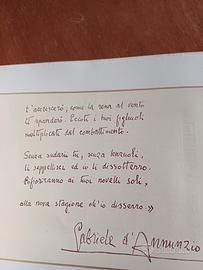 t'accrescerò, come la rena al vento
ti spanderò. Ecco i tuoi figliuoli
moltiplicati dal combattimento.
Senza sudarii tu, senza lenzuoli,
ti seppellisci ed io ti dissotterro.
Rifioriranno ai tuoi novelli soli,
alla nova stagione ch'io disserro.»
Gabriele d'Annunzio